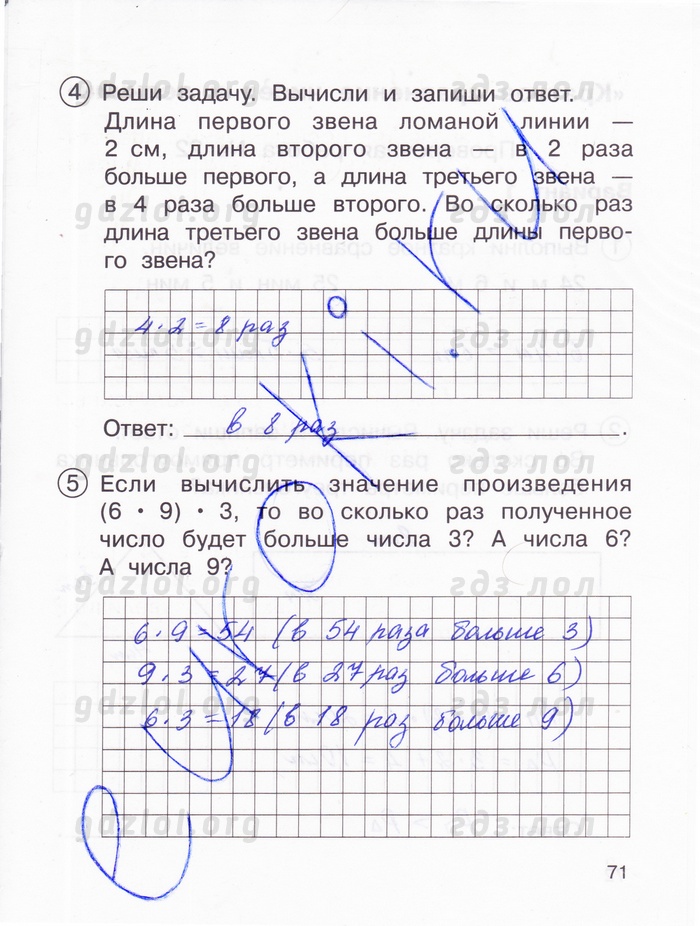 4 Реши задачу. Вычисли и запиши ответ.
Длина первого звена ломаной линии —
2 см, длина второго звена — в 2 раза
больше первого, а длина третьего звена —
в 4 раза больше второго. Во сколько раз
длина третьего звена больше длины перво-
го звена?
4 · 2 = 8 раз
Ответ: в 8 раз.
5 Если вычислить значение произведения
(6 · 9) · 3, то во сколько раз полученное
число будет больше числа 3? А числа 6?
А числа 9?
6 · 9 = 54 (в 54 раза больше 3)
9 · 3 = 27 (в 27 раз больше 6)
6 · 3 = 18 (в 18 раз больше 9)
71
gdzlol.org гдз лол
gdzlol.org гдз лол
gdzlol.org гдз лол
gdzlol.org гдз лол
gdzlol.org гдз лол
gdzlol.org гдз лол
gdzlol.org гдз лол